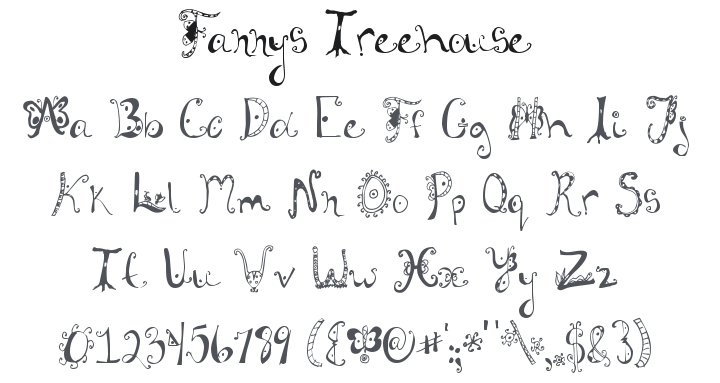 Fannys Treehouse
Aa Bb Cc Dd Ee Ff Gg Hh Ii Jj
Kk Ll Mm Nn Oo Pp Qq Rr Ss
Tt Uu Vv Ww Xx Yy Zz
0123456789 ({!@#':;*"\,.$&3)